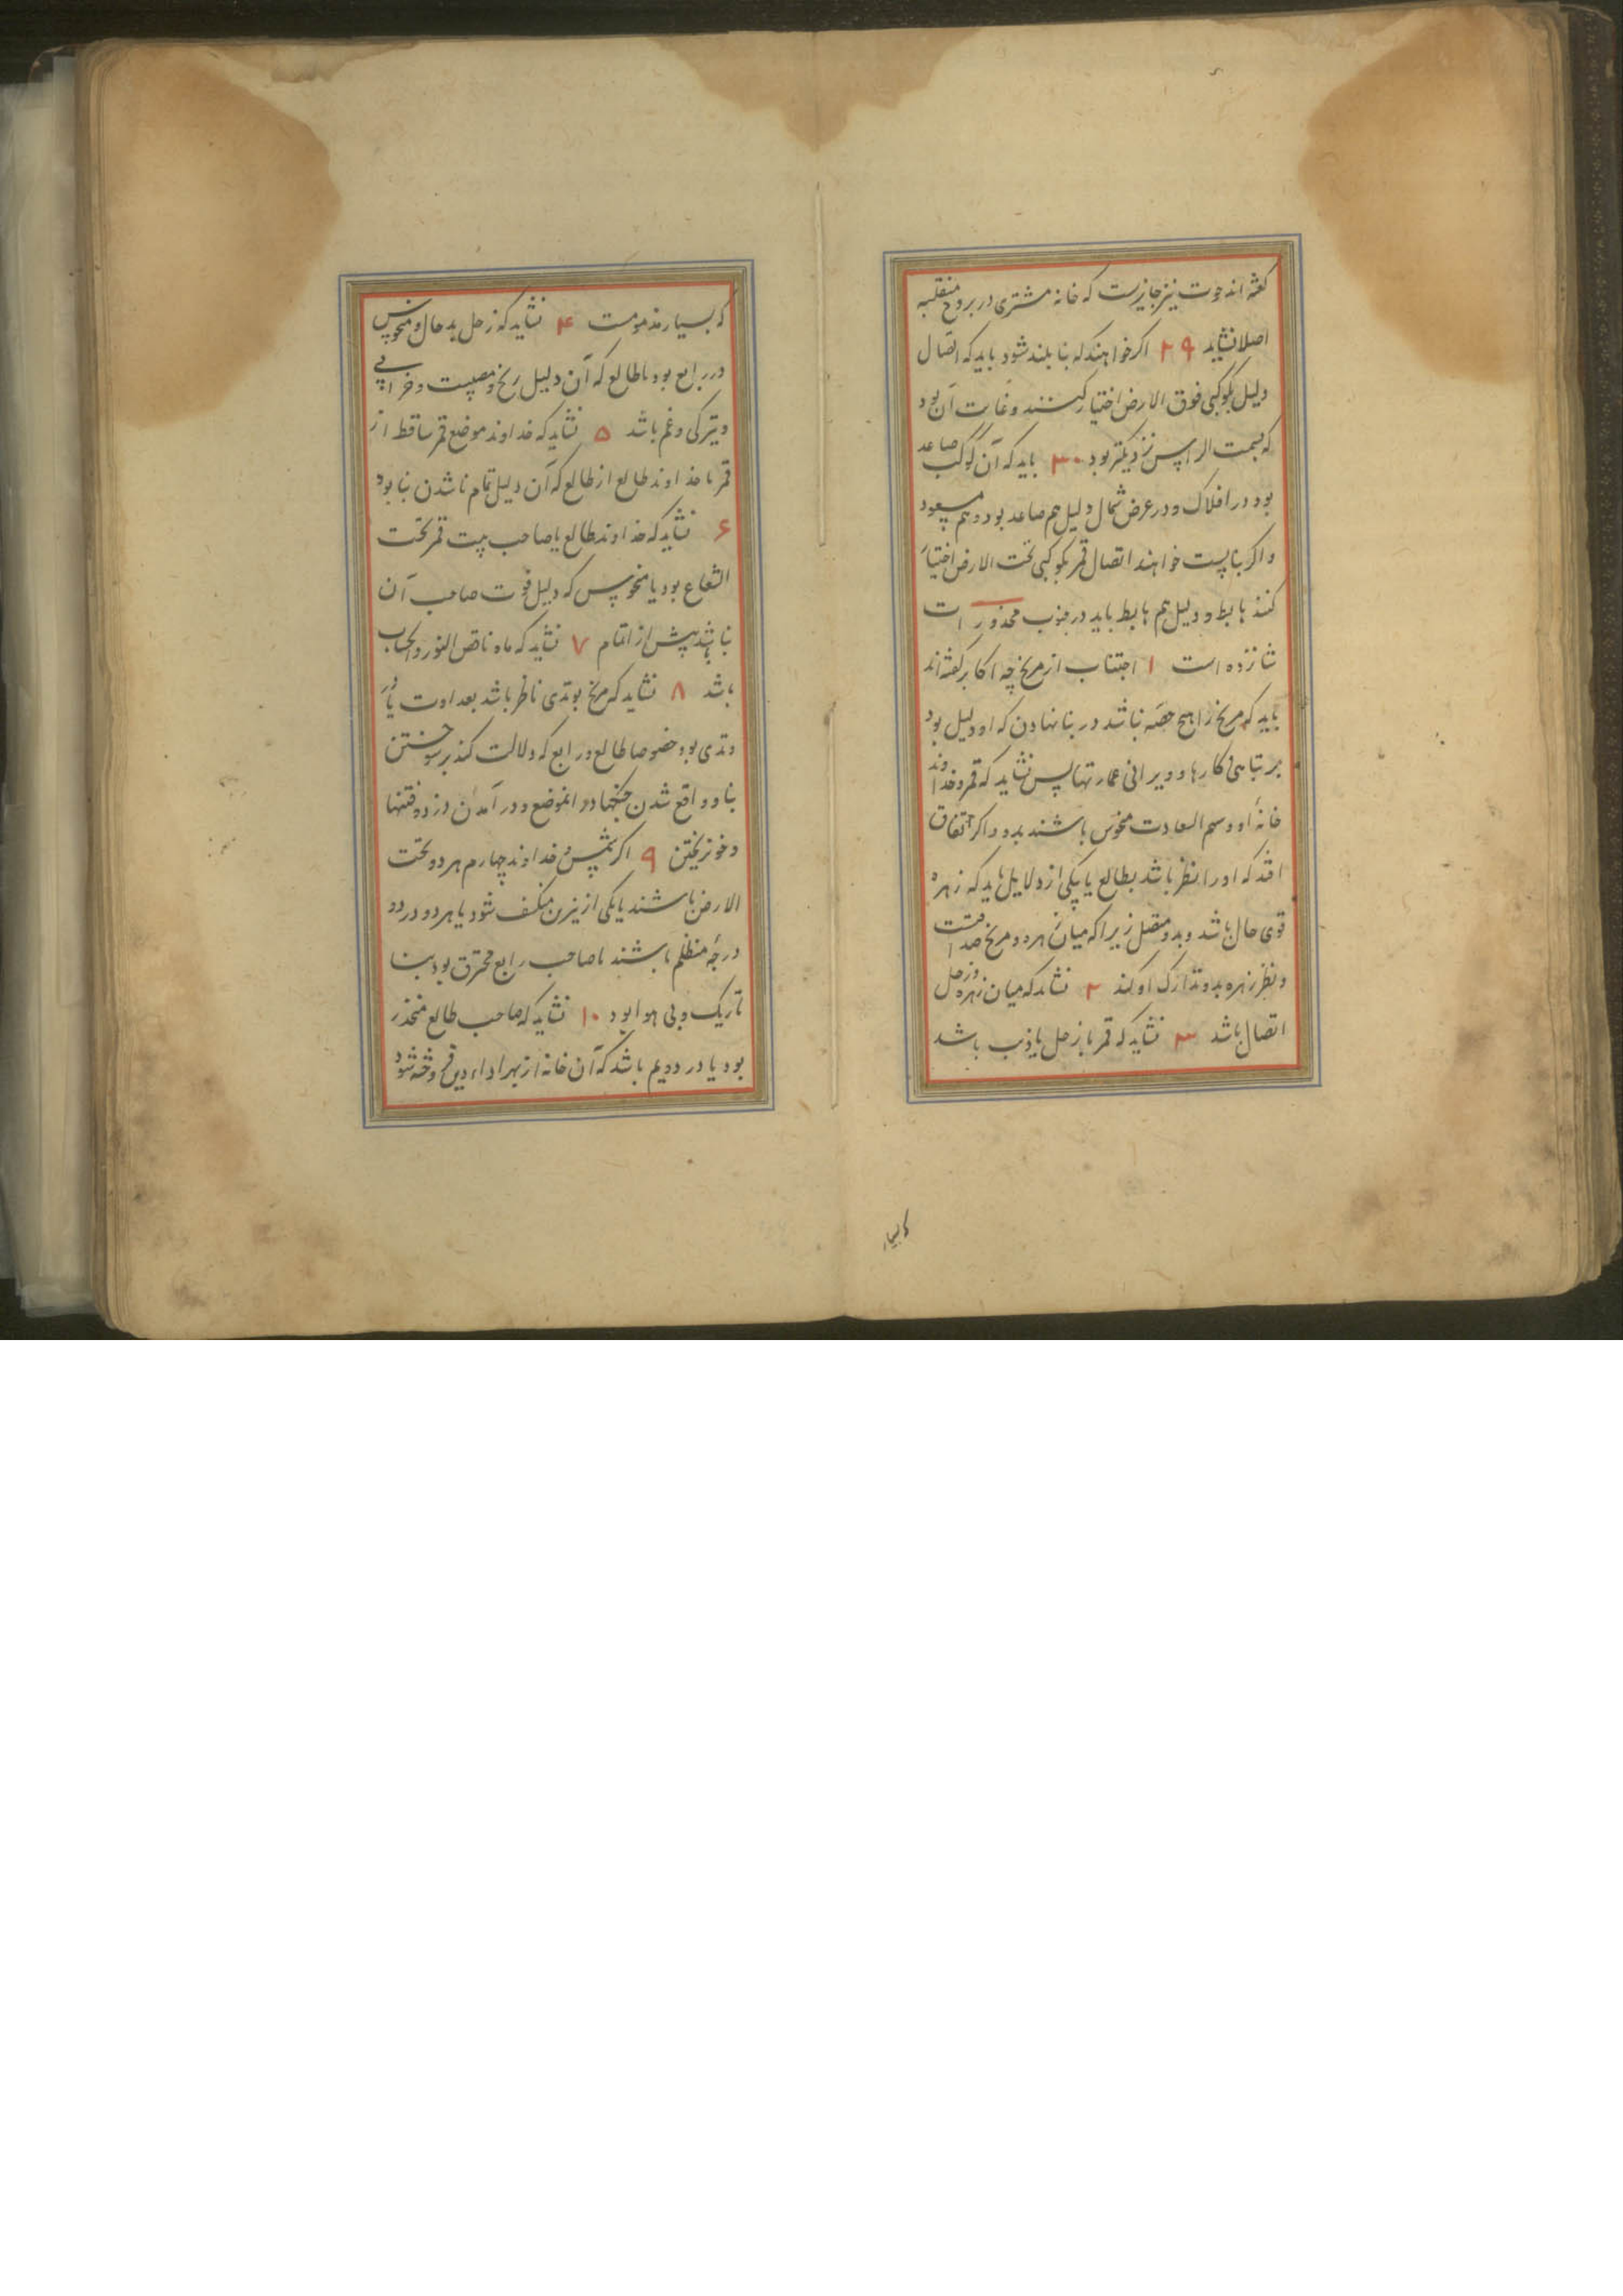 گفته اند حوت نیز جایزست که خانه مشتری در بروج منقلبه
اصلا نشاید ۲۹ اکر خواهند که بنا بلند شود باید که اتصال
دلیل بکوکبی فوق الارض اختیار کنند و غایت آن بود
که بسمت الراس نزدیکتر بود ۳۰ باید که آن کوکب صاعد
بود در افلاک و در عرض شمال دلیل هم صاعد بود و هم مسعود
و اکر بنا پست خواهند اتصال قمر بکوکبی تحت الارض اختیار
کنند هابط و دلیل هم هابط باید در جنوب محذورات
شانزده است ۱ اجتناب از مریخ چه اکابر گفته اند
باید که مریخ را هیچ حصه نباشد در بنا نهادن که او دلیل بود
بر تباهی کارها و ویرانی عمارتها پس نشاید که قمر و خداوند
خانهٔ او و سهم السعادت منحوس باشند بدو و اکر اتفاق
افتد که او را نظر باشد بطالع یا بیکی از دلایل باید که زهره
قوی حال باشد و بدو متصل زیرا که میان زهره و مریخ صداقتست
و نظر زهره بدو تدارک او کند ۲ نشاید که میان زهره و زحل
اتصال باشد ۳ نشاید که قمر با زحل یا ذنب باشد
که بسیار
که بسیار مذمومست ۴ نشاید که زحل بد حال و منحوس
در رابع بود یا طالع که آن دلیل رنج و مصیبت و خرابی
و تیرکی و غم باشد ۵ نشاید که خداوند موضع قمر ساقط از
قمر یا خداوند طالع از طالع که آن دلیل تمام ناشدن بنا بود
۶ نشاید که خداوند طالع یا صاحب بیت قمر تحت
الشعاع بود یا منحوس که دلیل فوت صاحب آن
بنا باشد پیش از اتمام ۷ نشاید که ماه ناقص النور و الحساب
باشد ۸ نشاید که مریخ بوتدی ناظر باشد بعداوت یا در
وتدی بود خصوصا طالع و رابع که دلالت کند بر سوختن
بنا و واقع شدن جنکها در انموضع و در آمدن دزد و فتنها
و خون ریختن ۹ اکر شمس و خداوند چهارم هر دو تحت
الارض باشند یا یکی از نیرین منکسف شود یا هر دو در دو
درجهٔ مظلم باشند یا صاحب رابع محترق بود بنا
تاریک و بی هوا بود ۱۰ نشاید که صاحب طالع منحدر
بود یا در دویم باشد که آن خانه از بهر اداء دین فروخته شود